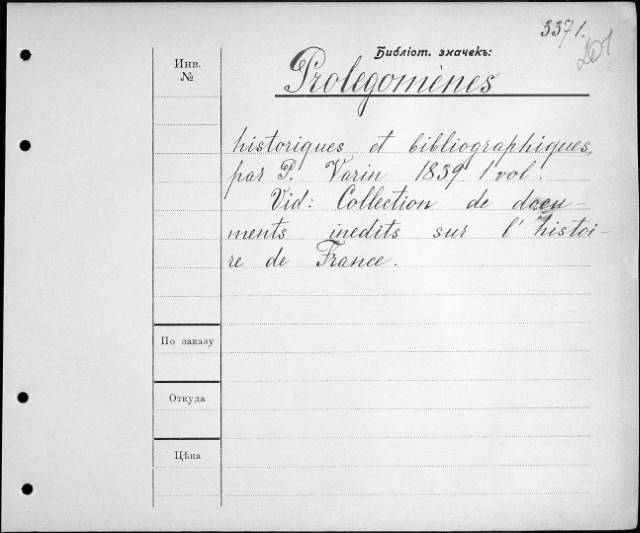 3371.
Библіот. значекъ:
Инв.
№
Prolegomènes
historiques et bibliographiques,
par P. Varin 1839 1 vol.
Vid: Collection de docu-
ments inedits sur l'histoi-
re de France.
По заказу
Откуда
Цѣна